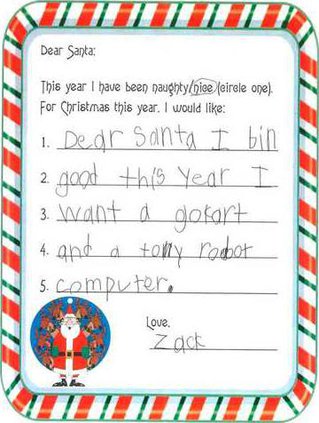 Dear Santa:
This year I have been naughty/nice (circle one).
For Christmas this year, I would like:
1. Dear Santa I bin
2. good this year I
3. want a gokart
4. and a tony robot
5. computer.
Love,
Zack